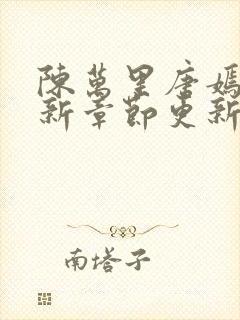 陳萬里唐嫣
新章節更新
南塔子